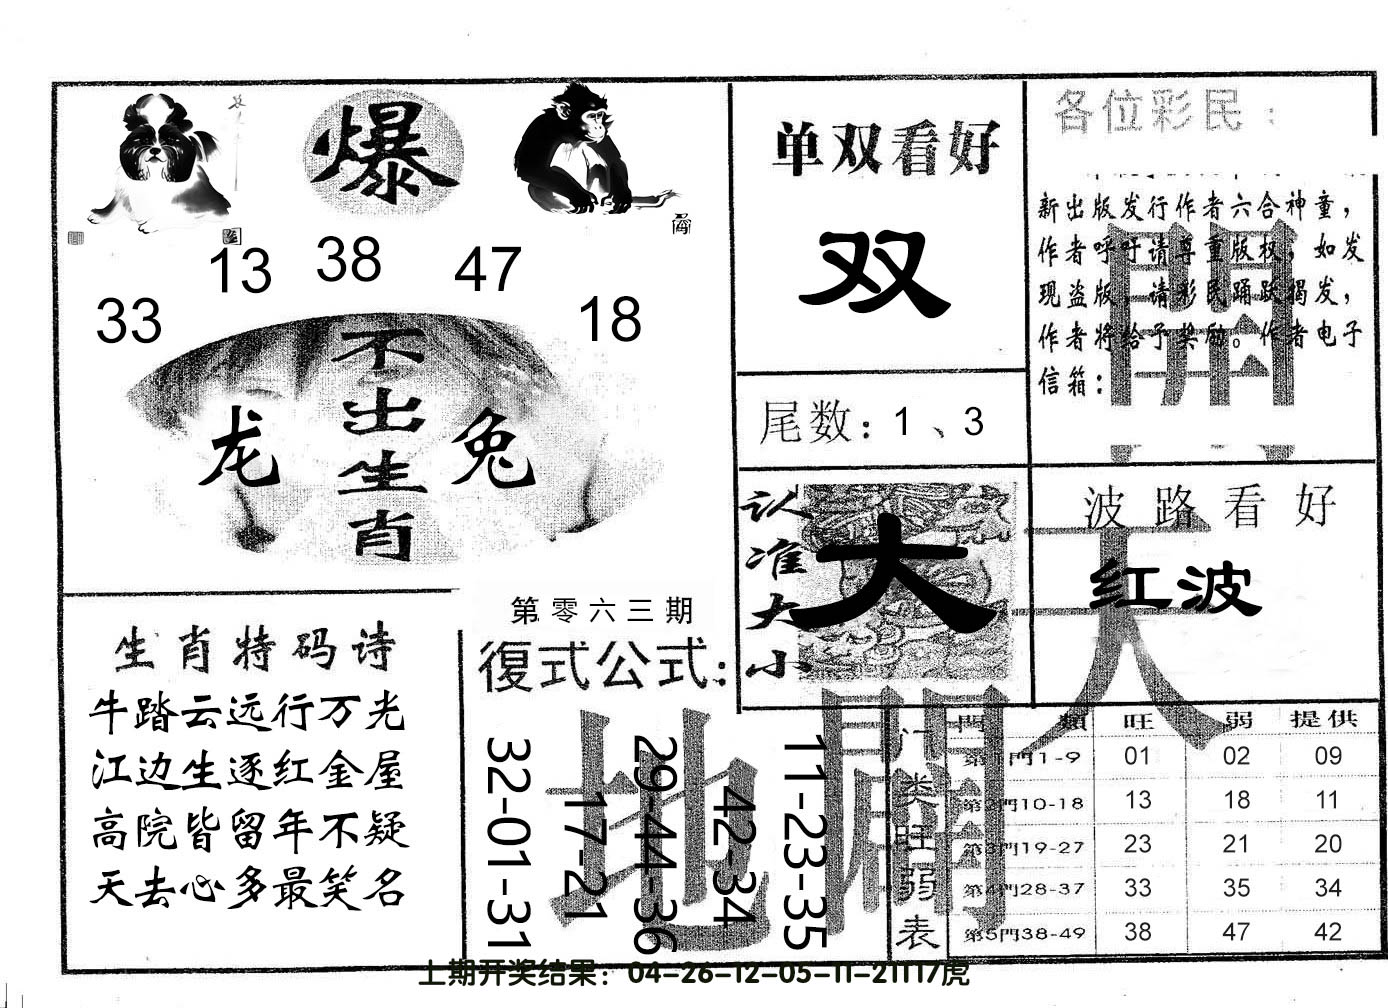 爆
13
38
47
33
18
不出生肖
龙
兔
单双看好
双
尾数：1、3
各位彩民：
新出版发行作者六合神童，
作者呼吁请尊重版权，如发
现盗版，请彩民踊跃揭发，
作者将给予奖励。作者电子
信箱：
認准大小
大
波路看好
红波
天
開
生肖特码诗
牛踏云远行万光
江边生逐红金屋
高院皆留年不疑
天去心多最笑名
第零六三期
復式公式：
32-01-31
17-21
29-44-36
42-34
11-23-35
地
開
门类旺弱表
門類 旺 弱 提供
第1門1-9 01 02 09
第2門10-18 13 18 11
第3門19-27 23 21 20
第4門28-37 33 35 34
第5門38-49 38 47 42
上期开奖结果：04-26-12-05-11-21T17虎